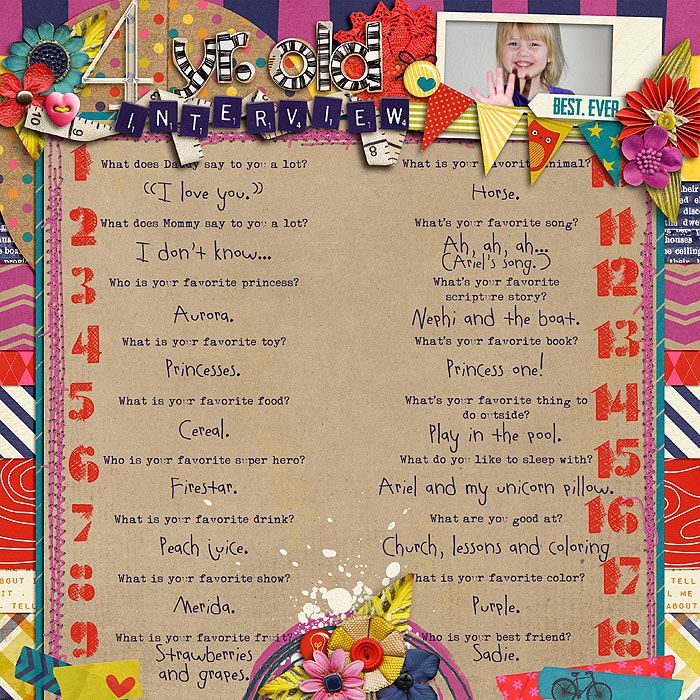 4 yr. old
INTERVIEW
BEST. EVER
1
What does Daddy say to you a lot?
"I love you."
2
What does Mommy say to you a lot?
I don't know...
3
Who is your favorite princess?
Aurora.
4
What is your favorite toy?
Princesses.
5
What is your favorite food?
Cereal.
6
Who is your favorite super hero?
Firestar.
7
What is your favorite drink?
Peach juice.
8
What is your favorite show?
Merida.
9
What is your favorite fruit?
Strawberries
and grapes.
What is your favorite animal?
Horse.
11
What's your favorite song?
Ah, ah, ah...
(Ariel's song.)
12
What's your favorite
scripture story?
Nephi and the boat.
13
What's your favorite book?
Princess one!
14
What's your favorite thing to
do outside?
Play in the pool.
15
What do you like to sleep with?
Ariel and my unicorn pillow.
16
What are you good at?
Church, lessons and coloring
17
What is your favorite color?
Purple.
18
Who is your best friend?
Sadie.